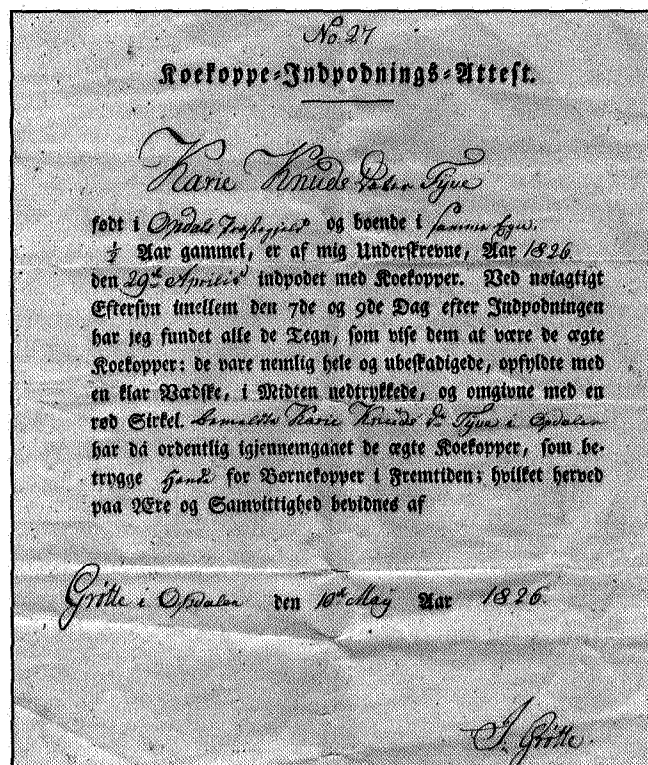 No. 27
Koekoppe-Indpodnings-Attest.
Karie Knuds Datter Tyve
født i Opdals Præstegjeld og boende i samme Egn.
½ Aar gammel, er af mig Underskrevne, Aar 1826.
den 29de Aprilis indpodet med Koekopper. Ved nøiagtigt
Eftersyn imellem den 7de og 9de Dag efter Indpodningen
har jeg fundet alle de Tegn, som vise dem at være de ægte
Koekopper: de vare nemlig hele og ubeskadigede, opfyldte med
en klar Vædske, i Midten nedtrykkede, og omgivne med en
rød Sirkel. bemeldte Karie Knuds dr Tyve i Opdalen
har da ordentlig igjennemgaaet de ægte Koekopper, som be-
trygge Hende for Børnekopper i Fremtiden; hvilket herved
paa Ære og Samvittighed bevidnes af
Grötte i Opdalen den 10de May Aar 1826.
J. Grötte.